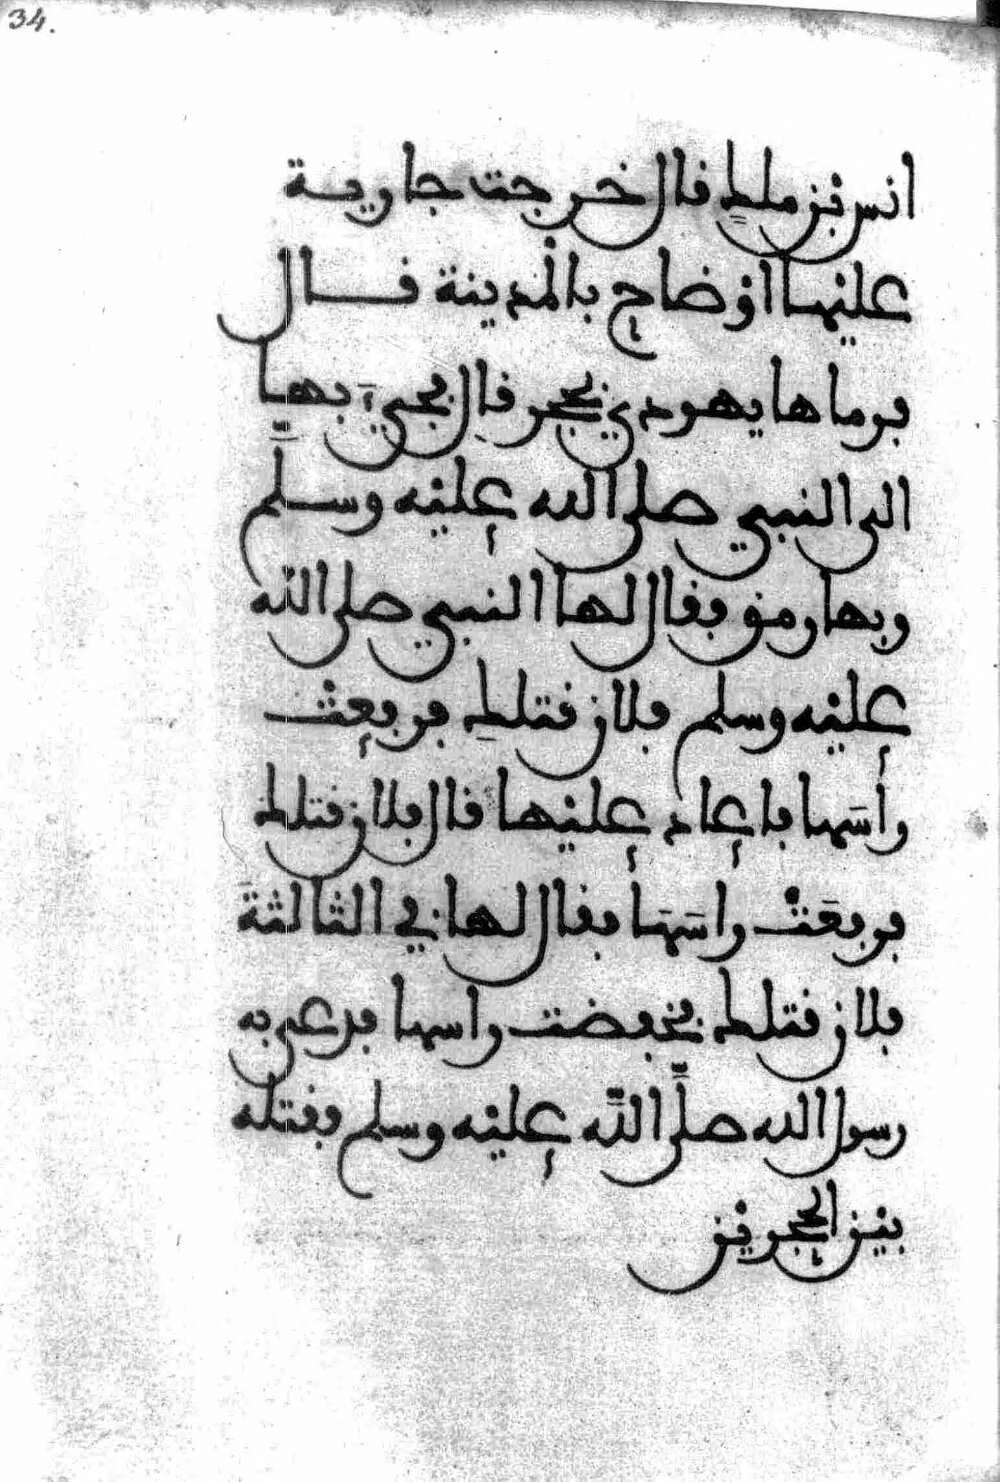 34.
انس بن ملك قال خرجت جارية
عليها اوضاح بالمدينة قال
فرماها يهودي بحجر قال فجيء بها
الى النبي صلى الله عليه وسلم
وبها رمق فقال لها النبي صلى الله
عليه وسلم فلان قتلك فرفعت
راسها فاعاد عليها قال فلان قتلك
فرفعت راسها فقال لها في الثالثة
فلان قتلك فخفضت راسها فدعى به
رسول الله صلى الله عليه وسلم فقتله
بين الحجرين